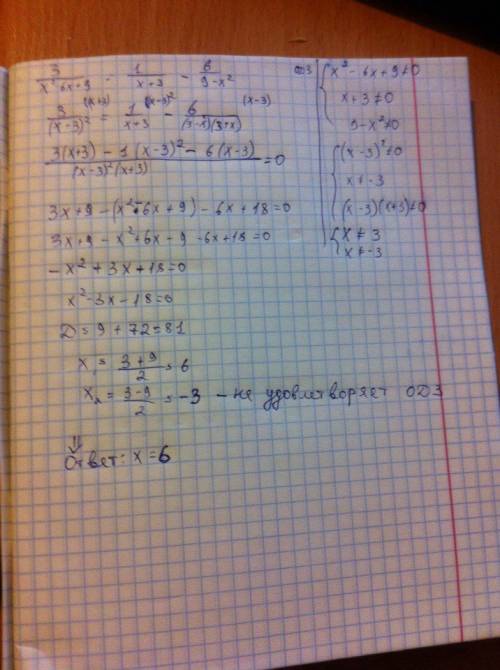 3/(x² 6x+9) - 1/(x+3) - 6/(9-x²)
3/(x-3)² (x+3) = 1/(x+3) (x-3)² - 6/((3-x)(3+x)) (x-3)
(3(x+3) - 1(x-3)² - 6(x-3))/((x-3)²(x+3)) = 0
3x+9-(x²-6x+9)-6x+18=0
3x+9-x²+6x-9-6x+18=0
-x²+3x+18=0
x²-3x-18=0
D=9+72=81
x₁=(3+9)/2=6
x₂=(3-9)/2=-3 - не удовлетворяет ОДЗ
⇓
Ответ: x=6
ОДЗ { x²-6x+9≠0
x+3≠0
9-x²≠0
{ (x-3)²≠0
x≠-3
(x-3)(x+3)≠0
{ x≠3
x≠-3